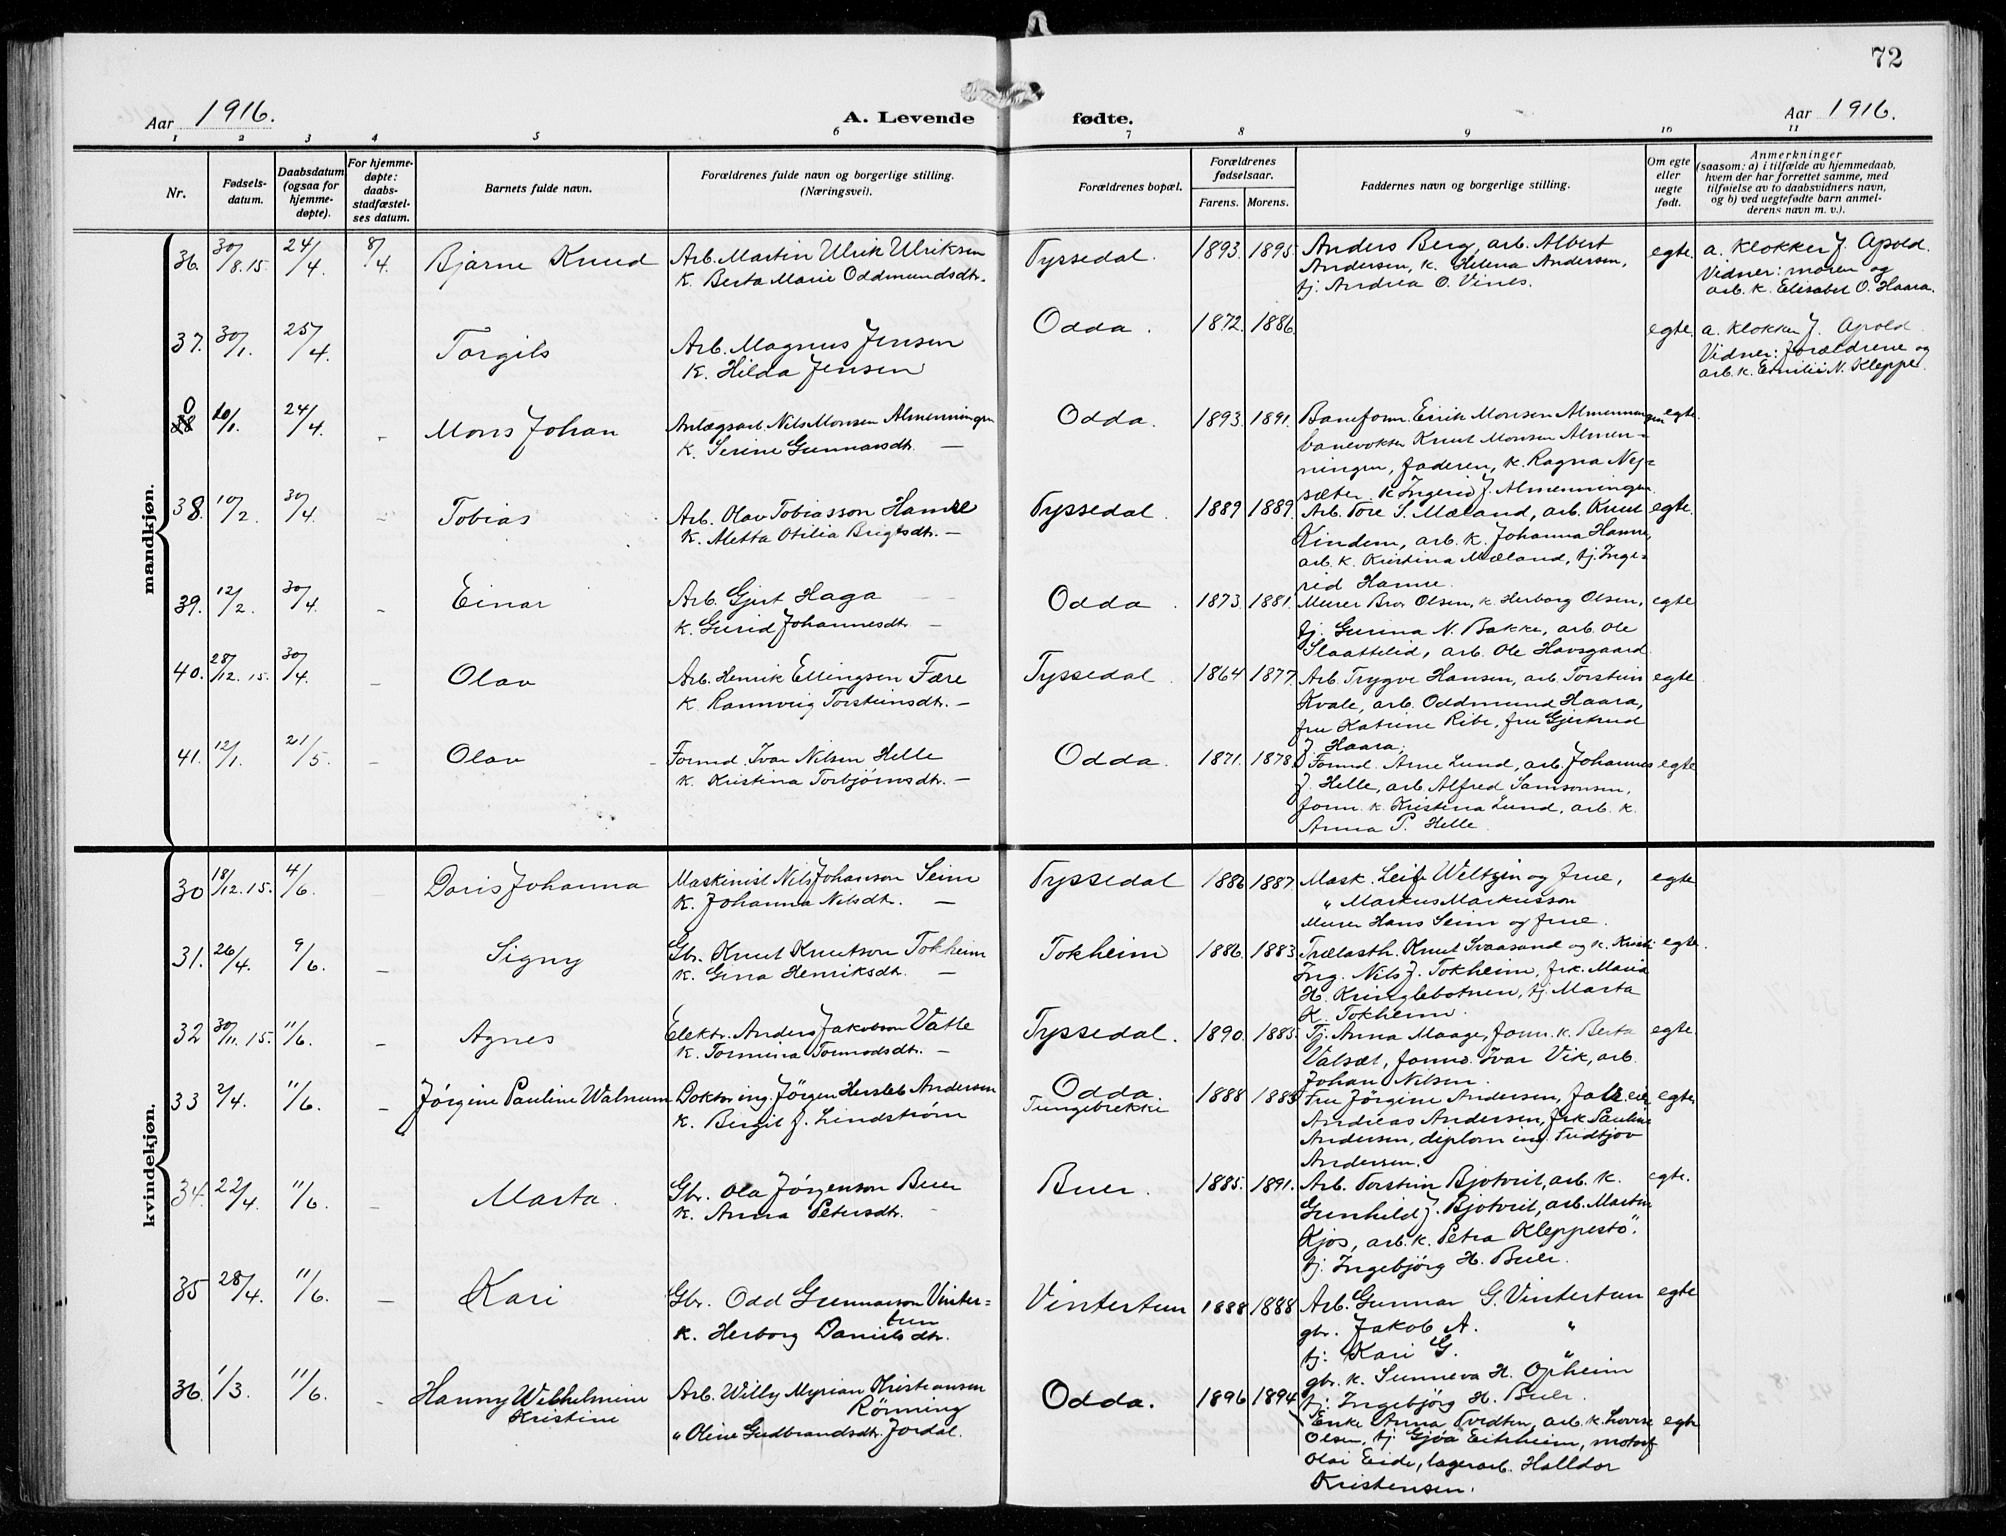 72
Aar 1916.
A. Levende fødte.
Aar 1916.
1 2 3 4 5 6 7 8 9 10 11
Nr.
Fødsels-
datum.
Daabsdatum
(ogsaa for
hjemme-
døpte).
For hjemme-
døpte:
daabs-
stadfæstel-
ses datum.
Barnets fulde navn.
Forældrenes fulde navn og borgerlige stilling.
(Næringsvei).
Forældrenes bopæl.
Forældrenes
fødselsaar.
Farens. Morens.
Faddernes navn og borgerlige stilling.
Om egte
eller
uegte
født.
Anmerkninger
(saasom: a) i tilfælde av hjemmedaab,
hvem der har forrettet samme, med
tilføielse av to daabsvidners navn,
og b) ved uegtefødte barn anmel-
derens navn m. v.).
mandkjøn.
36. 30/8.15. 24/4. 8/4. Bjarne Knud
Arb. Martin Ulrik Ulriksen
K. Berta Marie Oddmundsdtr.
Tyssedal. 1893. 1895.
Anders Berg, arb. Albert
Andersen, k. Helena Andersen,
tj. Andrea O. Vines.
egte.
a. Klokker J. Apold.
Vidner: moren og
arb. k. Elisabet O. Haara.
37. 30/1. 25/4. Torgils
Arb. Magnus Jensen
K. Hilda Jensen
Odda. 1872. 1886.
egte.
a. Klokker J. Apold.
Vidner: forældrene og
arb. k. Emilie N. Kleppe.
0
38 10/1. 24/4. - Mons Johan
Anlægsarb. Nils Monsen Almenningen
K. Serine Gunnarsdtr. —
Odda. 1893. 1891.
Baneform. Eirik Monsen Almenningen
banevokter Knut Monsen Almen-
ningen, faderen, k. Ragna Nej-
sæter, k. Ingerid J. Almenningen.
egte.
38. 10/2. 30/4. - Tobias
Arb. Olav Tobiasson Hamre
K. Aletta Otilia Brigtsdtr. —
Tyssedal. 1889 1889.
Arb. Tore S. Mæland, arb. Knut
Kindem, arb. k. Johanna Hamre,
arb. k. Kristina Mæland, tj. Inge-
rid Hamre.
egte.
39. 12/2. 30/4. - Einar
Arb. Gjert Haga
K. Gurid Johannesdtr. —
Odda. 1873. 1881.
Murer Bror Olsen, k. Herborg Olsen,
tj. Gurina N. Bakke, arb. Ole
Slaattelid, arb. Ole Havsgaard.
egte
40. 28/12. 15. 30/4. - Olav
Arb. Henrik Ellingsen Fære
K. Rannveig Torsteinsdtr. —
Tyssedal. 1864 1877.
Arb. Trygve Hansen, arb. Torstein
Kvale, arb. Oddmund Haara,
fru Katrine Ribe, fru Gjertrud
J. Haara.
egte
41. 12/1. 21/5. - Olav
Formd. Ivar Nilsen Helle
K. Kristina Torbjørnsdtr. —
Odda. 1871. 1878.
Formd. Arne Lund, arb. Johannes
J. Helle, arb. Alfred Samsonsen,
form. k. Kristina Lund, arb. k.
Anna P. Helle.
egte
kvindekjøn.
30 18/12. 15. 4/6. Doris Johanna
Maskinist Nils Johanson Seim
K. Johanna Nilsdtr. —
Tyssedal 1886 1887.
Mask. Leif Weltzin og frue,
" Markus Markusson
Murer Hans Seim og frue.
egte
31. 26/4. 9/6. - Signy
Gbr. Knut Knutson Tokheim
K. Gina Henriksdtr. —
Tokheim 1886. 1883.
Trælasth. Knut Svaasand og k. Kristi
Ing. Nils J. Tokheim, frk. Maria
H. Kringlebotnen, tj. Marta
K. Tokheim.
egte.
32 30/11. 15. 11/6. - Agnes
Elektr. Anders Jakobson Vatle
K. Tormina Tormodsdtr. —
Tyssedal. 1890. 1885.
Tj. Anna Maage, form. k. Berta
Valsæt, formd. Ivar Vik, arb.
Johan Nilsen.
egte.
33 2/4. 11/6. - Jørgine Pauline Walnum
Doktor ing. Jørgen Hersleb Andersen
K. Birgit J. Lindstrøm
Odda.
Tungebrekke
1888 1885
Fru Jørgine Andersen,
Andreas Andersen, frk Pauline
Andersen, diplom ing. Fridtjov
Andersen.
egte.
34. 22/4. 11/6. - Marta.
Gbr. Ola Jørgenson Buer
K. Anna Petersdtr. -
Buer. 1885. 1891.
Arb. Torstein Bjotveit, arb. k.
Gunhild J. Bjotveit, arb. Martin
Kjos, arb. k. Petra Kleppestø,
tj. Ingebjørg H. Buer.
egte.
35 28/4. 11/6. - Kari
Gbr. Odd Gunnarson Vinter-
tun
K. Herborg Danielsdtr.
Vintertun 1888 1888
Arb. Gunnar G. Vintertun
gbr. Jakob A. "
tj. Kari G. "
gbr. k. Sunneva H. Opheim
tj. Ingebjørg H. Buer.
egte
36. 1/3. 11/6. - Hanny Wilhelmine
Kristine
Arb. Willy Myrian Kristiansen
Rönning
" Oline Gudbrandsdtr. Jordal.
Odda. 1896 1894
Enke Anna Tvidten, arb. k. Lovise
Olsen, tj. Gjøa Eitrheim, motorf.
Olai Eide, lagerarb. Halldor
Kristensen.
egte